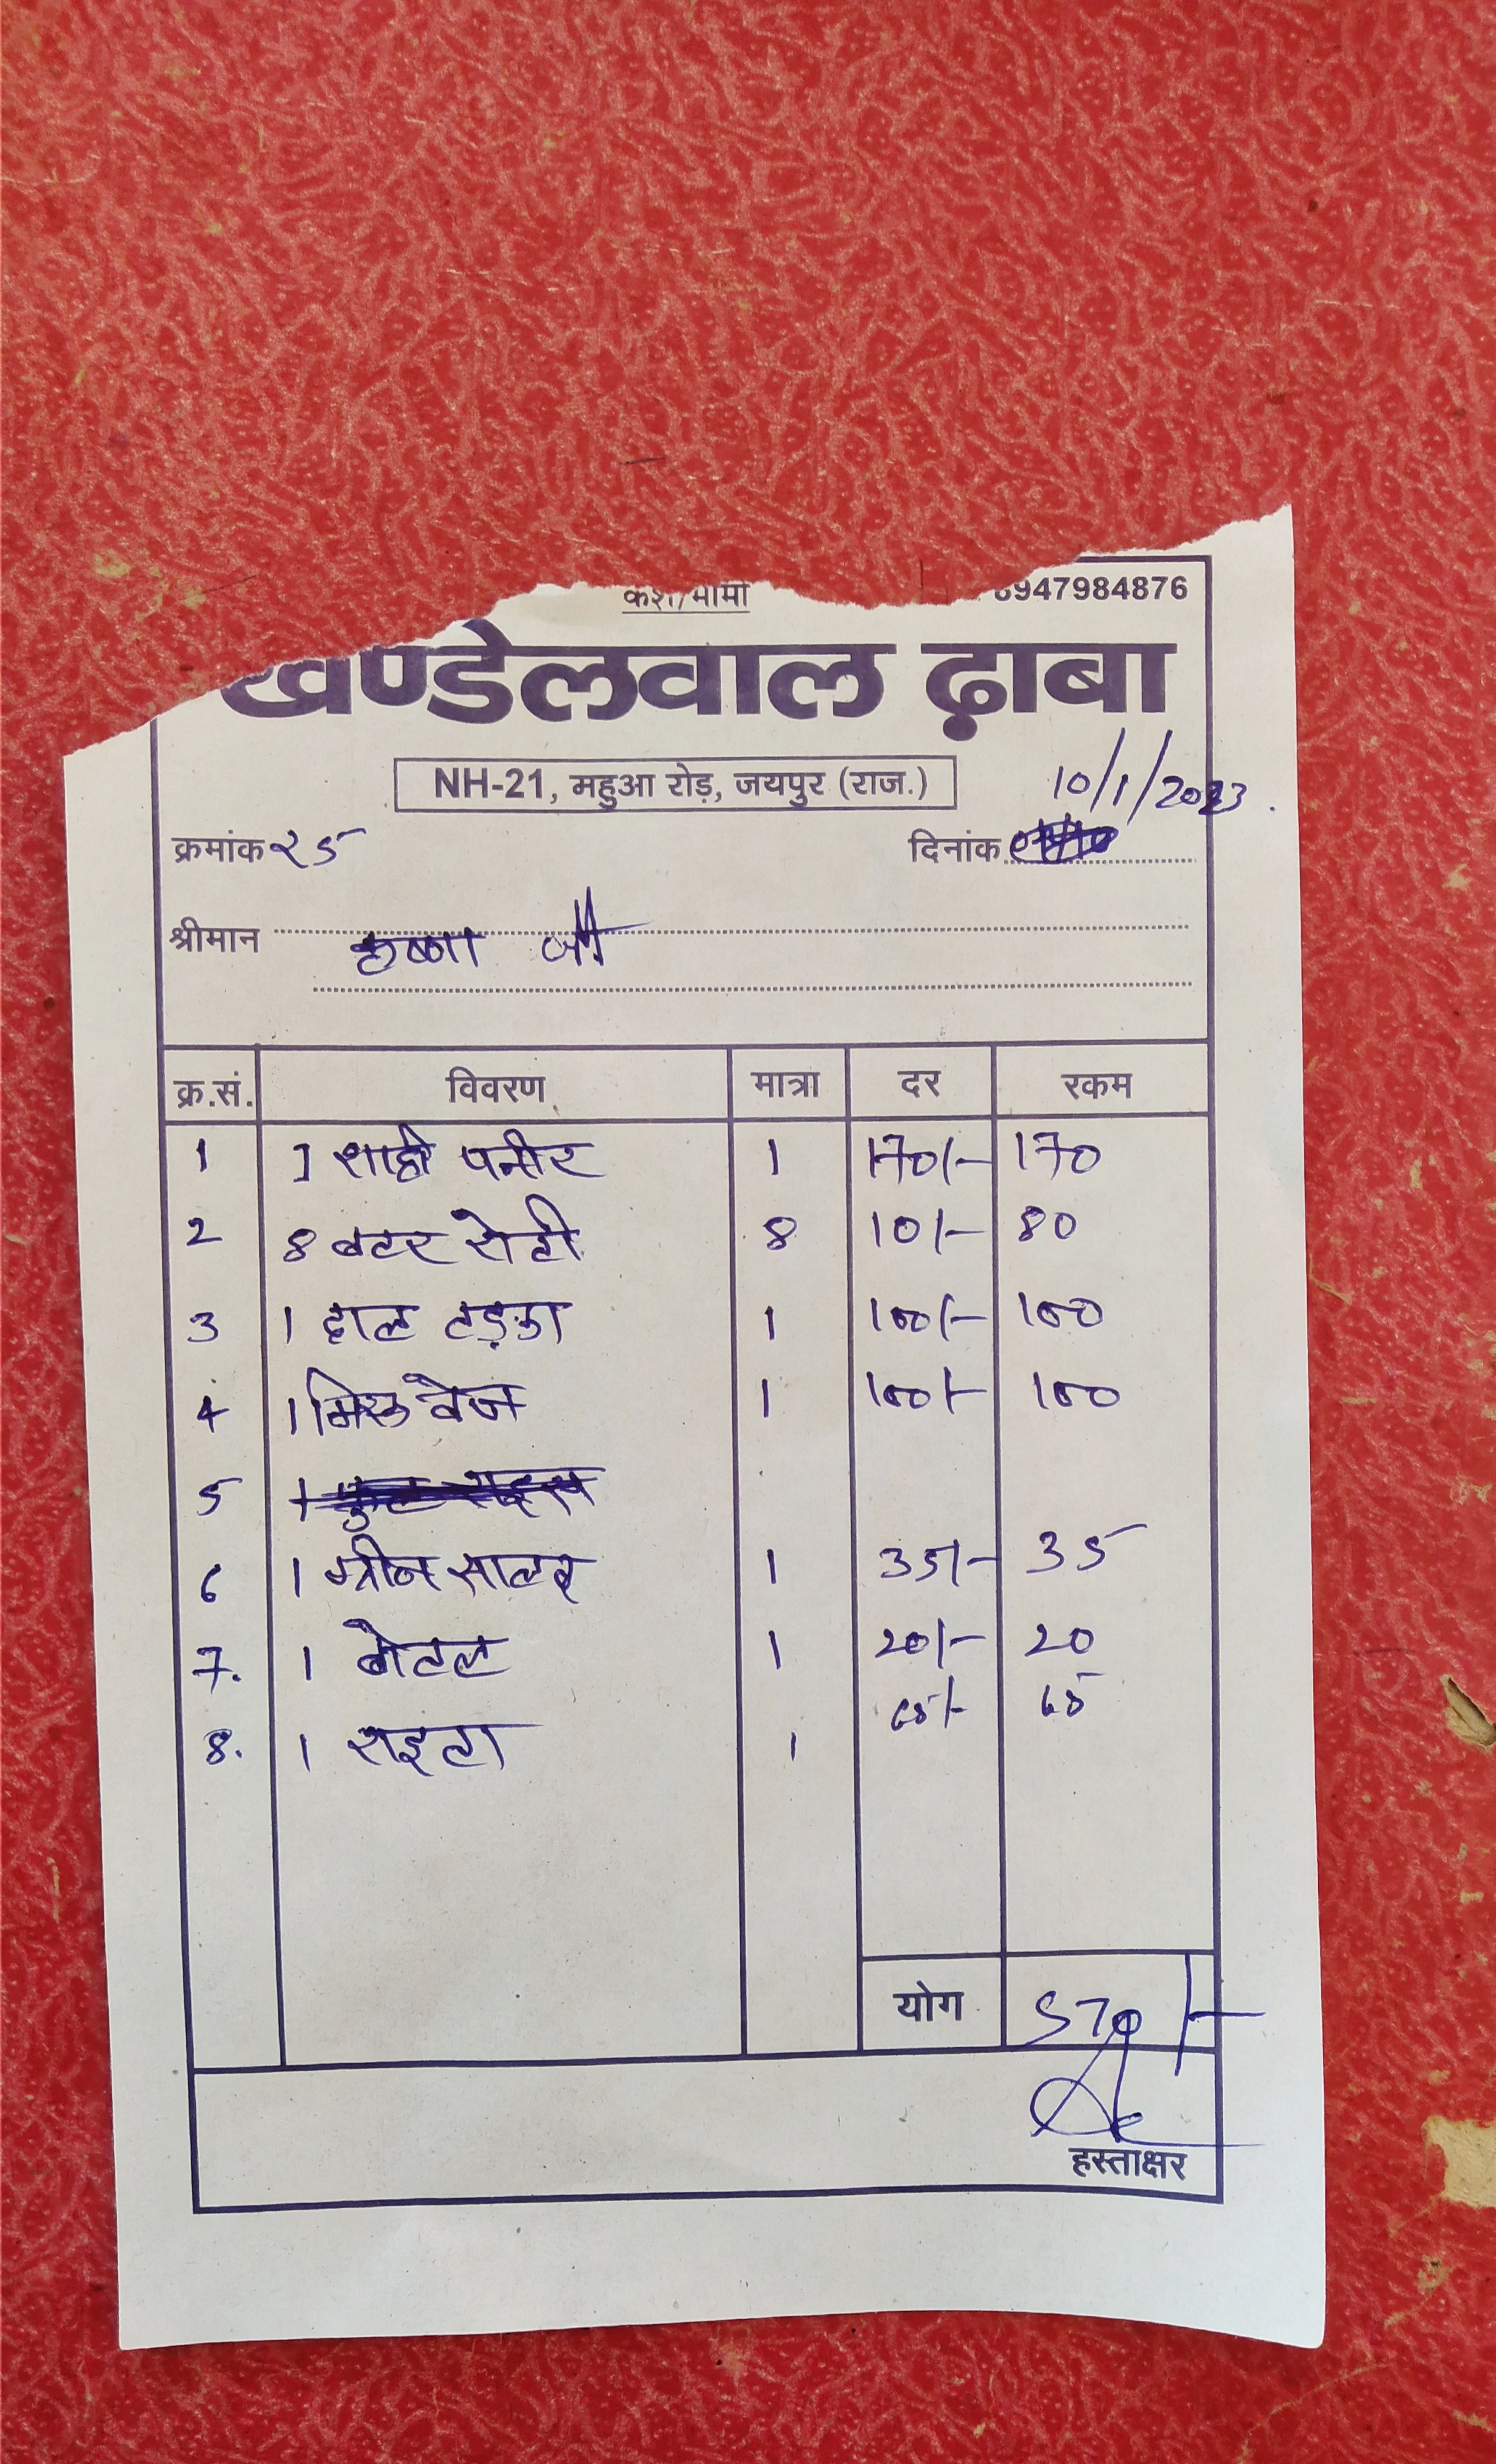 कैश/मीमो
947984876
खण्डेलवाल ढ़ाबा
NH-21, महुआ रोड़, जयपुर (राज.)
10/1/2023.
क्रमांक २5 दिनांक
श्रीमान कृष्णा जी
क्र.सं. विवरण मात्रा दर रकम
1 1 शाही पनीर 1 170/- 170
2 8 बटर रोटी 8 10/- 80
3 1 दाल तड़का 1 100/- 100
4 1 मिक्स वेज 1 100/- 100
5
6 1 ग्रीन सालद 1 35/- 35
7. 1 बोटल 1 20/- 20
8. 1 राइता 1 65/- 65
योग 570/-
हस्ताक्षर